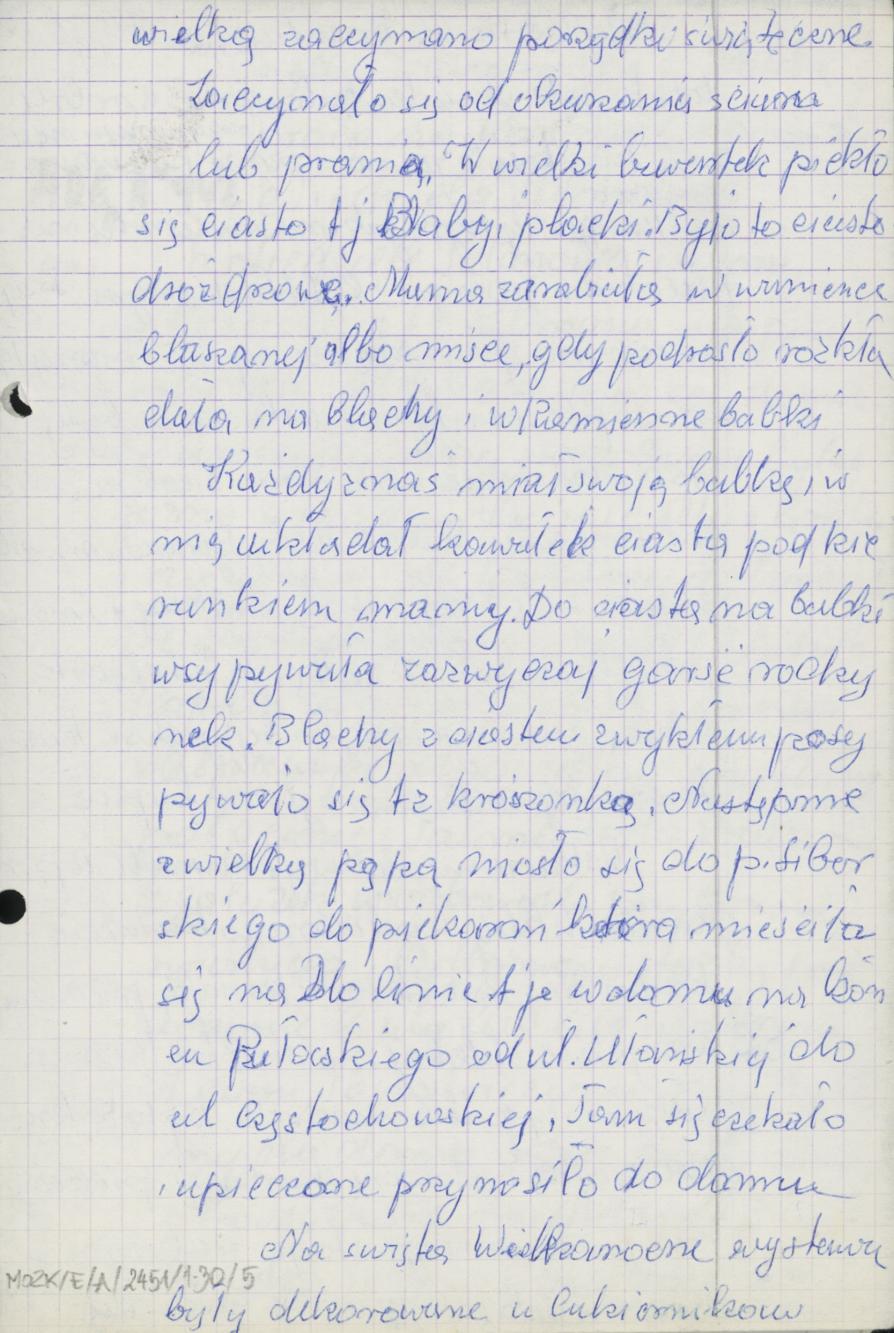 wielką zaczynano porządki świąteczne.
Zaczynało się od okurzania ścian
lub prania. W wielki czwartek piekło
się ciasto tj Baby i placki. Było to ciasto
drożdżowe. Mama zarabiała w wanience
blaszanej albo misce, gdy podrosło rozkła
dała na blachy i w kamienne babki
Każdy z nas miał swoją babkę i w
nią wkładał kawałek ciasta pod kie
runkiem mamy. Do ciasta na babki
wsypywała zazwyczaj garść rodzy
nek. Blachy z ciastem zwykłem posy
pywało się tz kruszonką. Następnie
z wielką pąpą niosło się do p. Sibor
skiego do piekarni która mieściła
się na Dolinie tj w domu na koń
cu Pułaskiego od ul. Ułańskiej do
ul Częstochowskiej. Tam się czekało
i upieczone przynosiło do domu
Na święta Wielkanocne wystawy
były dekorowane u Cukierników
MOZK/E/A/2451/1-30/5